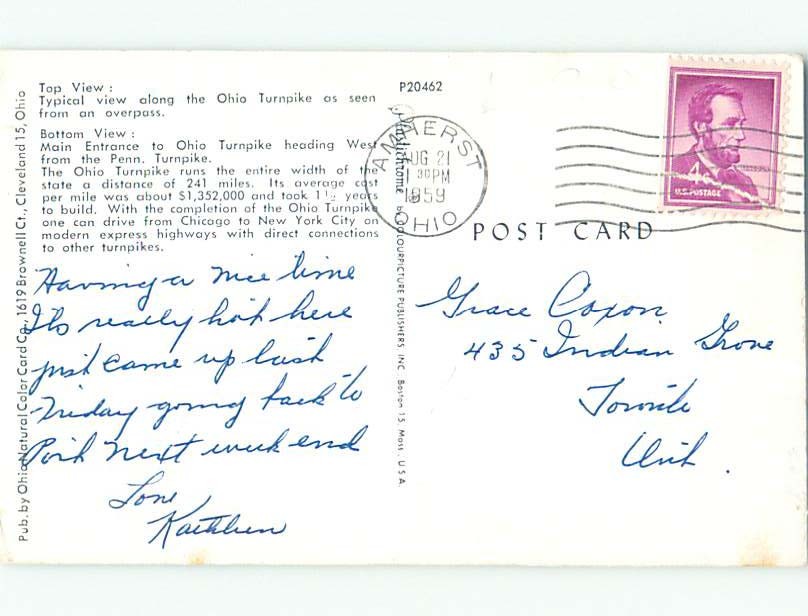 Top View :
Typical view along the Ohio Turnpike as seen
from an overpass.
Bottom View :
Main Entrance to Ohio Turnpike heading West
from the Penn. Turnpike.
The Ohio Turnpike runs the entire width of the
state a distance of 241 miles. Its average cost
per mile was about $1,352,000 and took 1½ years
to build. With the completion of the Ohio Turnpike
one can drive from Chicago to New York City on
modern express highways with direct connections
to other turnpikes.
Having a nice time
Its really hot here
just came up last
Friday going back to
next week end
Love
Kathleen
Pub. by Ohio Natural Color Card Co., 1619 Brownell Ct., Cleveland 15, Ohio
P20462
Plastichrome by COLOURPICTURE PUBLISHERS, INC. Boston 15, Mass., U.S.A.
AMHERST
AUG 21
1 30 PM
1959
OHIO
4¢
U.S. POSTAGE
POST CARD
Grace Coxon
435 Indian Grove
Toronto
Ont.